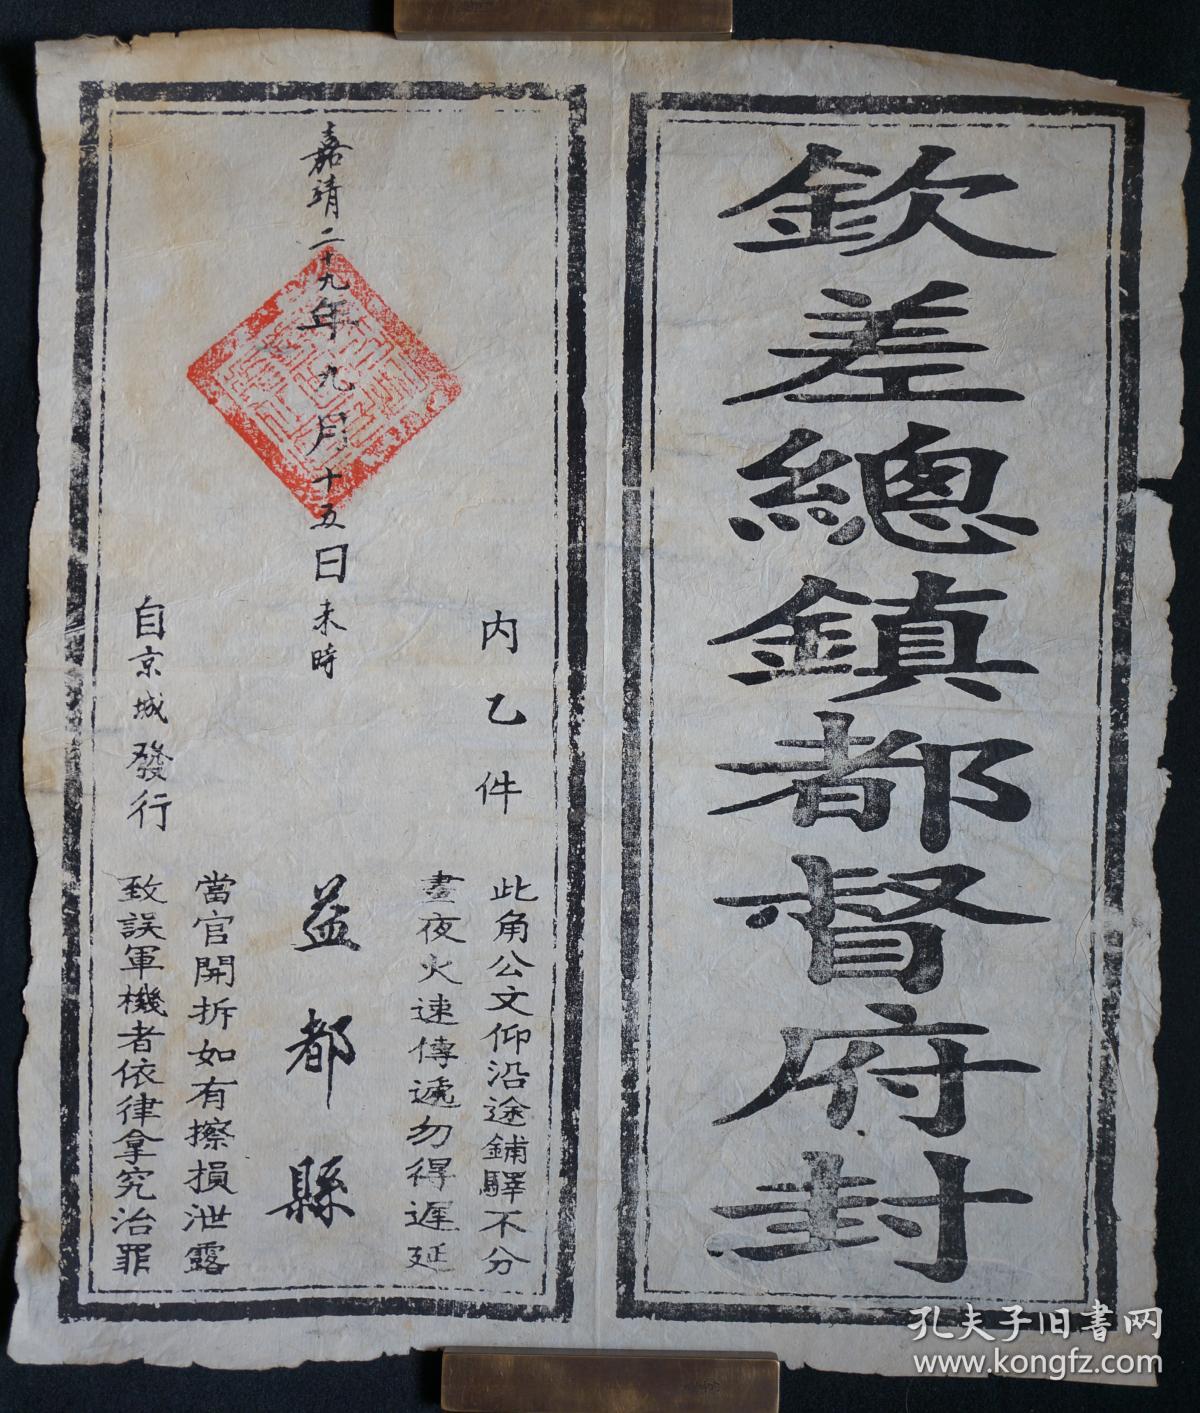 欽差總鎮都督府封
內乙件
此角公文仰沿途鋪驛不分
晝夜火速傳遞勿得遲延
益都縣
當官開拆如有擦損泄露
致誤軍機者依律拿究治罪
嘉靖二十九年九月十五日未時
自京城發行
孔夫子旧書网
www.kongfz.com